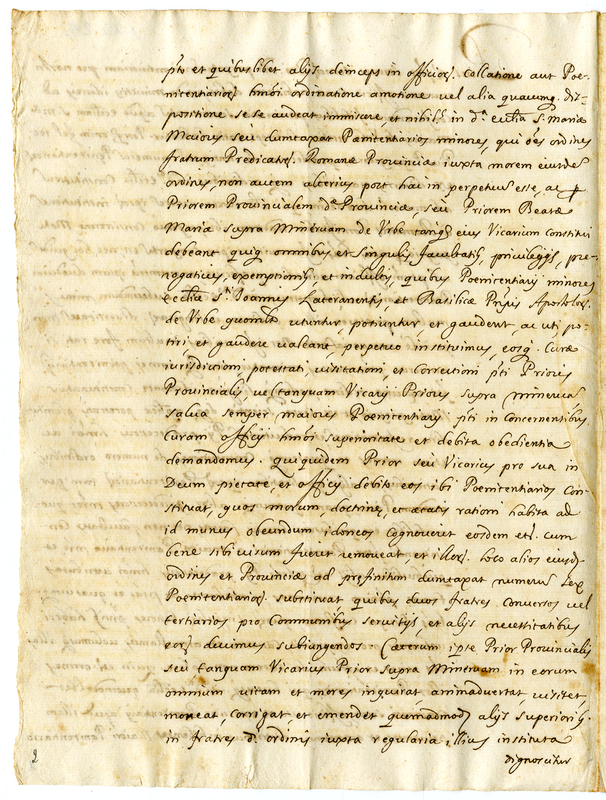 pti et quibuslibet alijs deinceps in officior. Collatione aut Poe-
nitentiarior. hmõi ordinatione amotione vel alia quacunq. dis-
positione se se audeat immiscere, et nihil in d.ª ecclia S. Mariæ
Maioris seu dumtaxat Pœnitentiarios minores, qui oẽs ordinis
fratrum Predicator. Romanæ Provinciæ iuxta morem eiusdẽ
ordinis, non autem alterius post hac in perpetuũ esse, ac p
Priorem Provincialem dæ Provinciæ, seu Priorem Beatæ
Mariæ supra Minervam de Urbe tanq eius Vicarium Constitui
debeant quiq omnibus et singulis facultatib, privilegijs, præ-
rogativis, exemptionib, et indultis, quibus Poenitentiarij minores
eccliæ S. Ioannis Lateranensis, et Basilicæ Prñpis Apostolor.
de Urbe quomlt utuntur, potiuntur et gaudent, ac uti po-
tiri et gaudere valeant, perpetuo instituimus, eosq. Curæ
iurisdictioni, potestati, visitationi, et Correctioni pti Prioris
Provincialis, vel tanquam Vicarij Prioris supra minervã
salva semper maioris Poenitentiarij pti in Concernentibus
Curam officij hmõi superioritate et debita obedientia
demandamus. Quiquidem Prior seu Vicarius pro sua in
Deum pietate, et officij debito eos ibi Poenitentiarios Con-
stituat, quos morum, doctrinæ, et ætatis ratione habita ad
id munus obeundum idoneos cognoverit eosdem et cum
bene sibi visum fuerit removeat, et illor. loco alios eiusd.
ordinis et Provinciæ ad præfinitum dumtaxat numerũ sex
Poenitentiarior. substituat quibus duos fratres Conversos vel
tertiarios pro Communibus servitijs, et alijs necessitatibus
eor. duximus subiungendos. Cæterum ipse Prior Provincialis
seu tanquam Vicarius Prior supra Minervam in eorum
omnium vitam et mores inquirat, animadvertat, visitet,
moneat, corrigat, et emendet quemadmod. alijs superiorib.
in fratres dĩ ordinis iuxta regularia illius instituta
dignoscitur
2